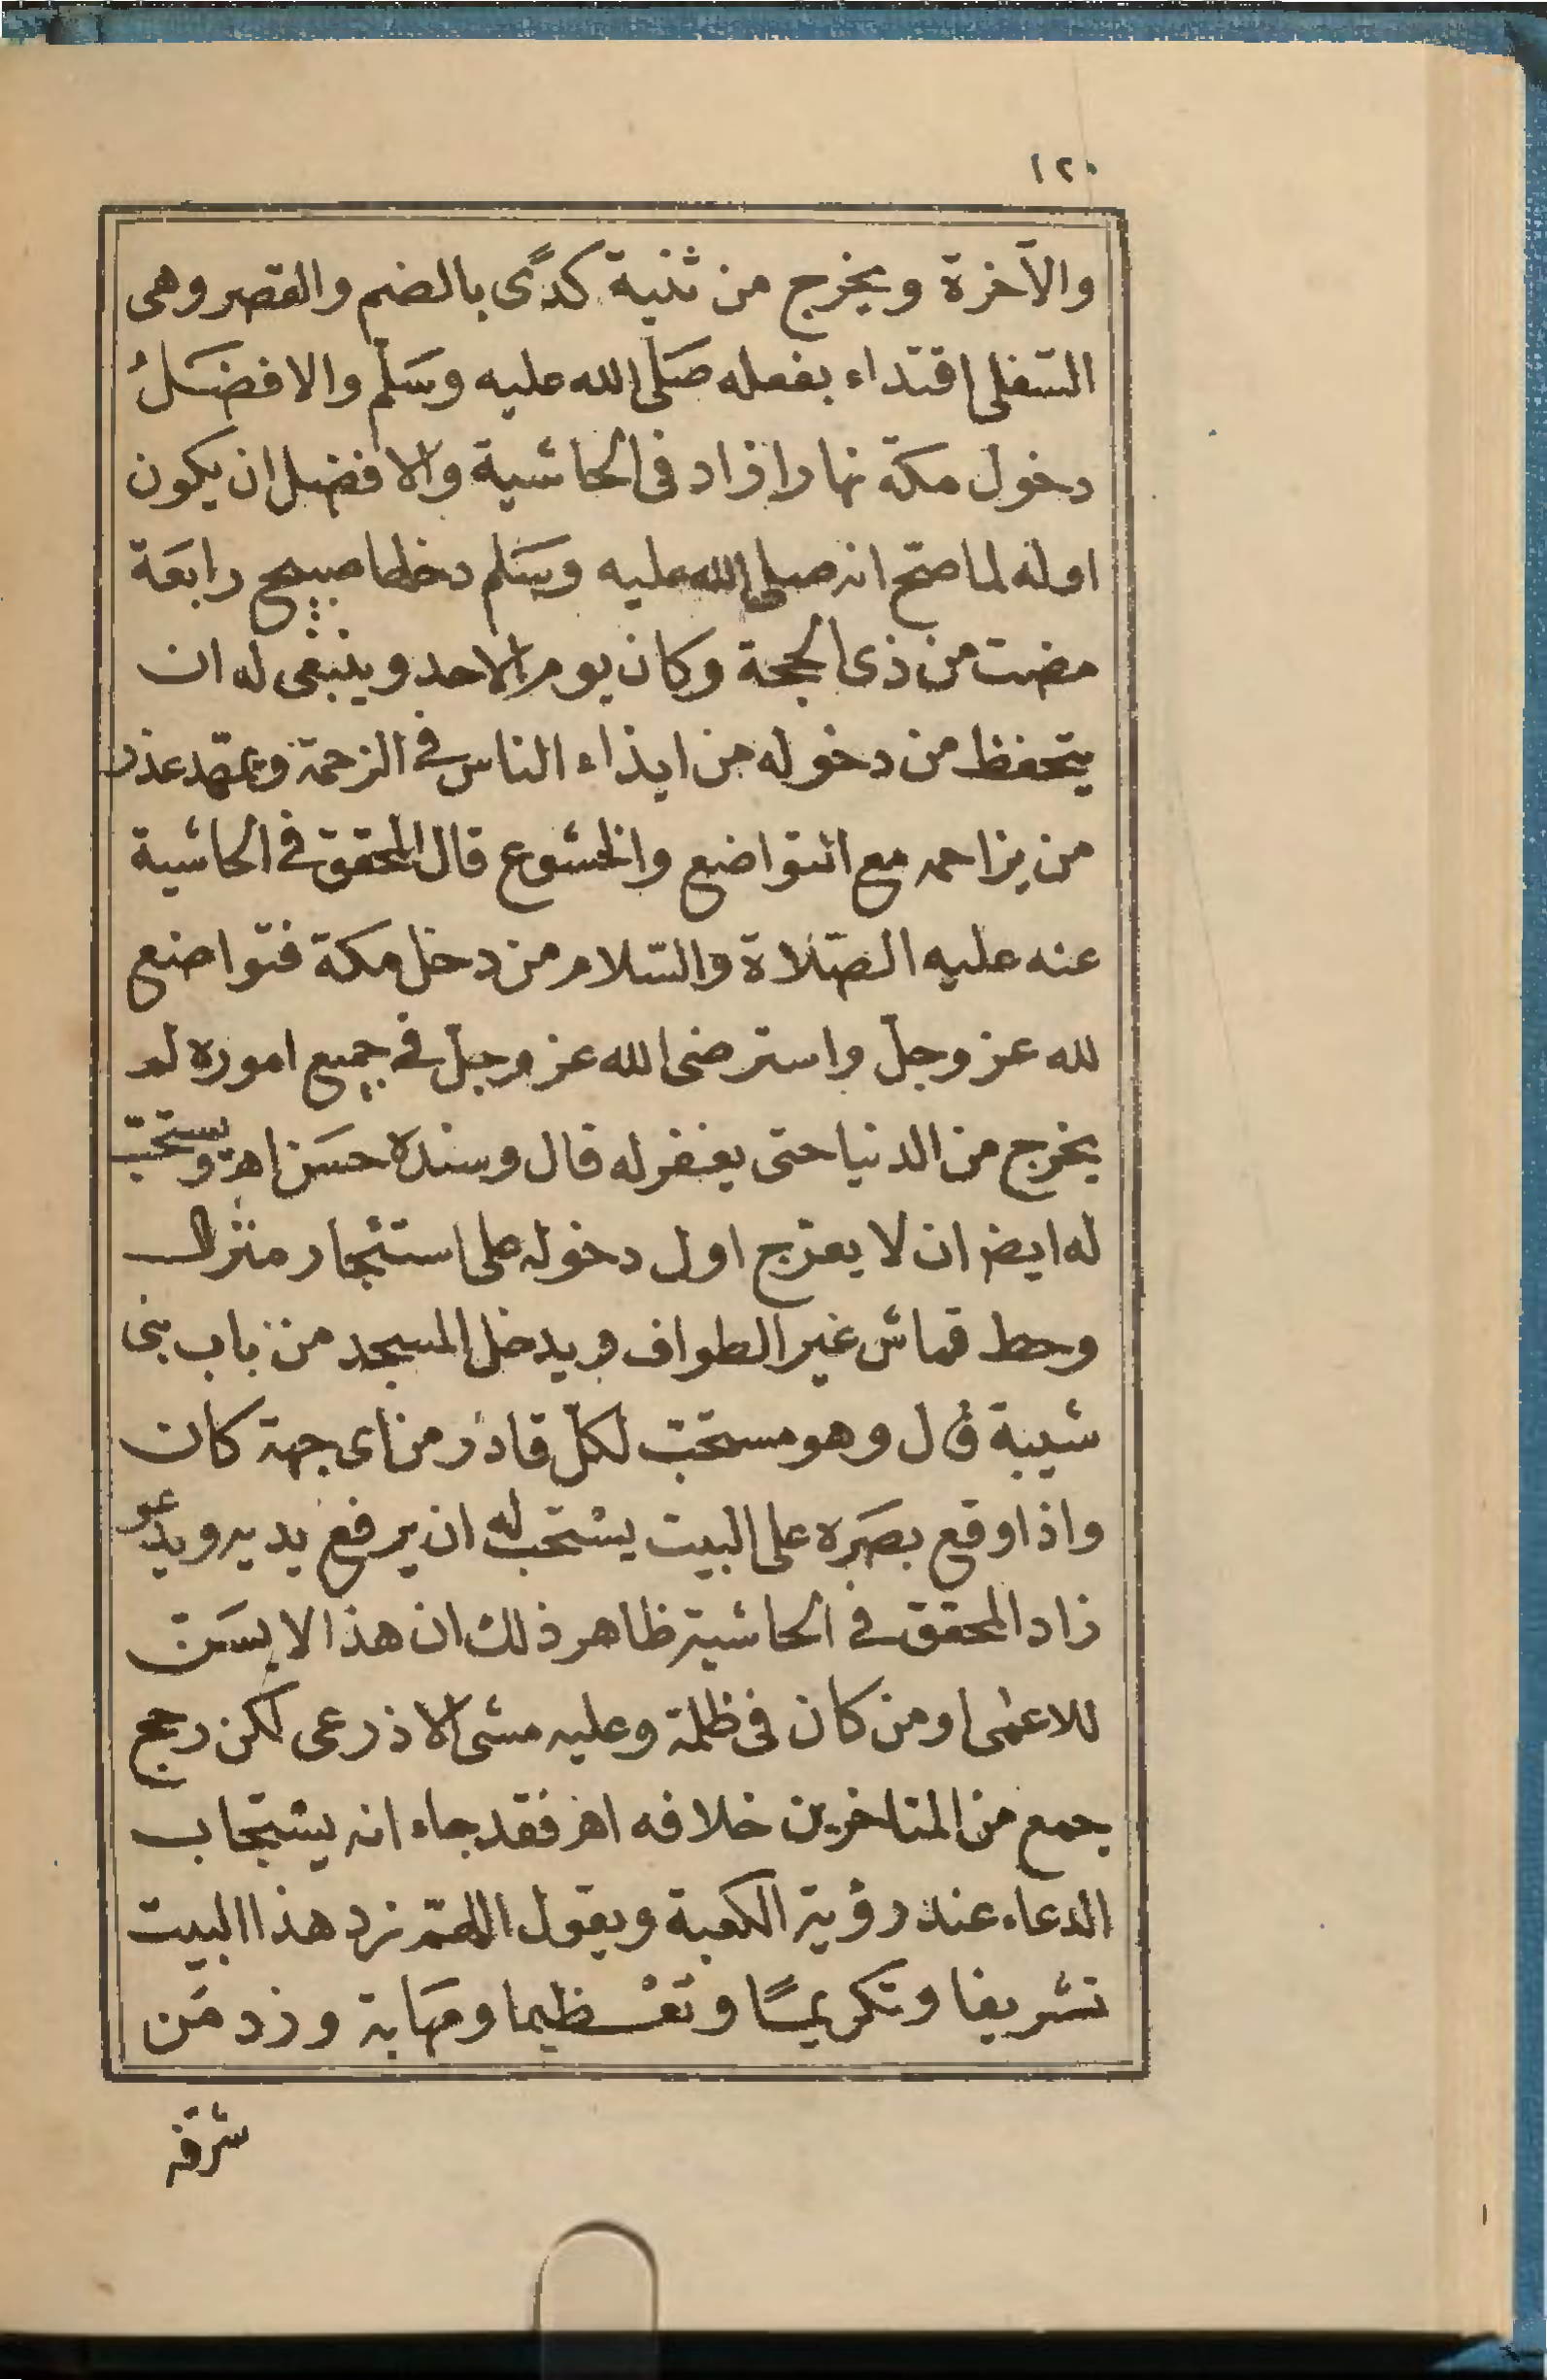 ١٢٠
والآخرة ويخرج من ثنية كدًى بالضم والقصر وهى
السّفلى اقتداء بفعله صَلّى الله عليه وسَلّم والافضَلُ
دخول مكة نهارا زاد فى الحاشية والافضل ان يكون
اوله لما صحّ انه صلى الله عليه وسَلم دخلها صبيح رابعَة
مضت من ذى الحجة وكان يوم الاحد وينبغى له ان
يتحفظ من دخوله من ايذاء الناس فى الزحمة ويمهّد عذر
من يزاحمه مع التواضع والخشوع قال المحقق فى الحاشية
عنه عليه الصّلاة والسّلام من دخل مكة فتواضع
لله عز وجلّ واسترضى الله عز وجلّ فى جميع اموره لم
يخرج من الدنيا حتى يغفر له قال وسنده حسَن اهـ ويستحبّ
له ايضا ان لا يعرّج اول دخوله على استئجار منزل
وحط قماش غير الطواف ويدخل المسجد من باب بنى
شيبة قال وهو مستحبّ لكلّ قادر من اى جهة كان
واذا وقع بصَره على البيت يستحب له ان يرفع يديه ويدعو
زاد المحقق فى الحاشية ظاهر ذلك ان هذا لا يسَن
للاعمى او من كان فى ظلمة وعليه مشى الاذرعى لكن رجح
جمع من المتاخرين خلافه اهـ فقد جاء انه يستجاب
الدعاء عند رؤية الكعبة ويقول اللهمّ زد هذا البيت
تشريفا وتكريمًا وتعْظيما ومهابة وزد مَن
شرفه